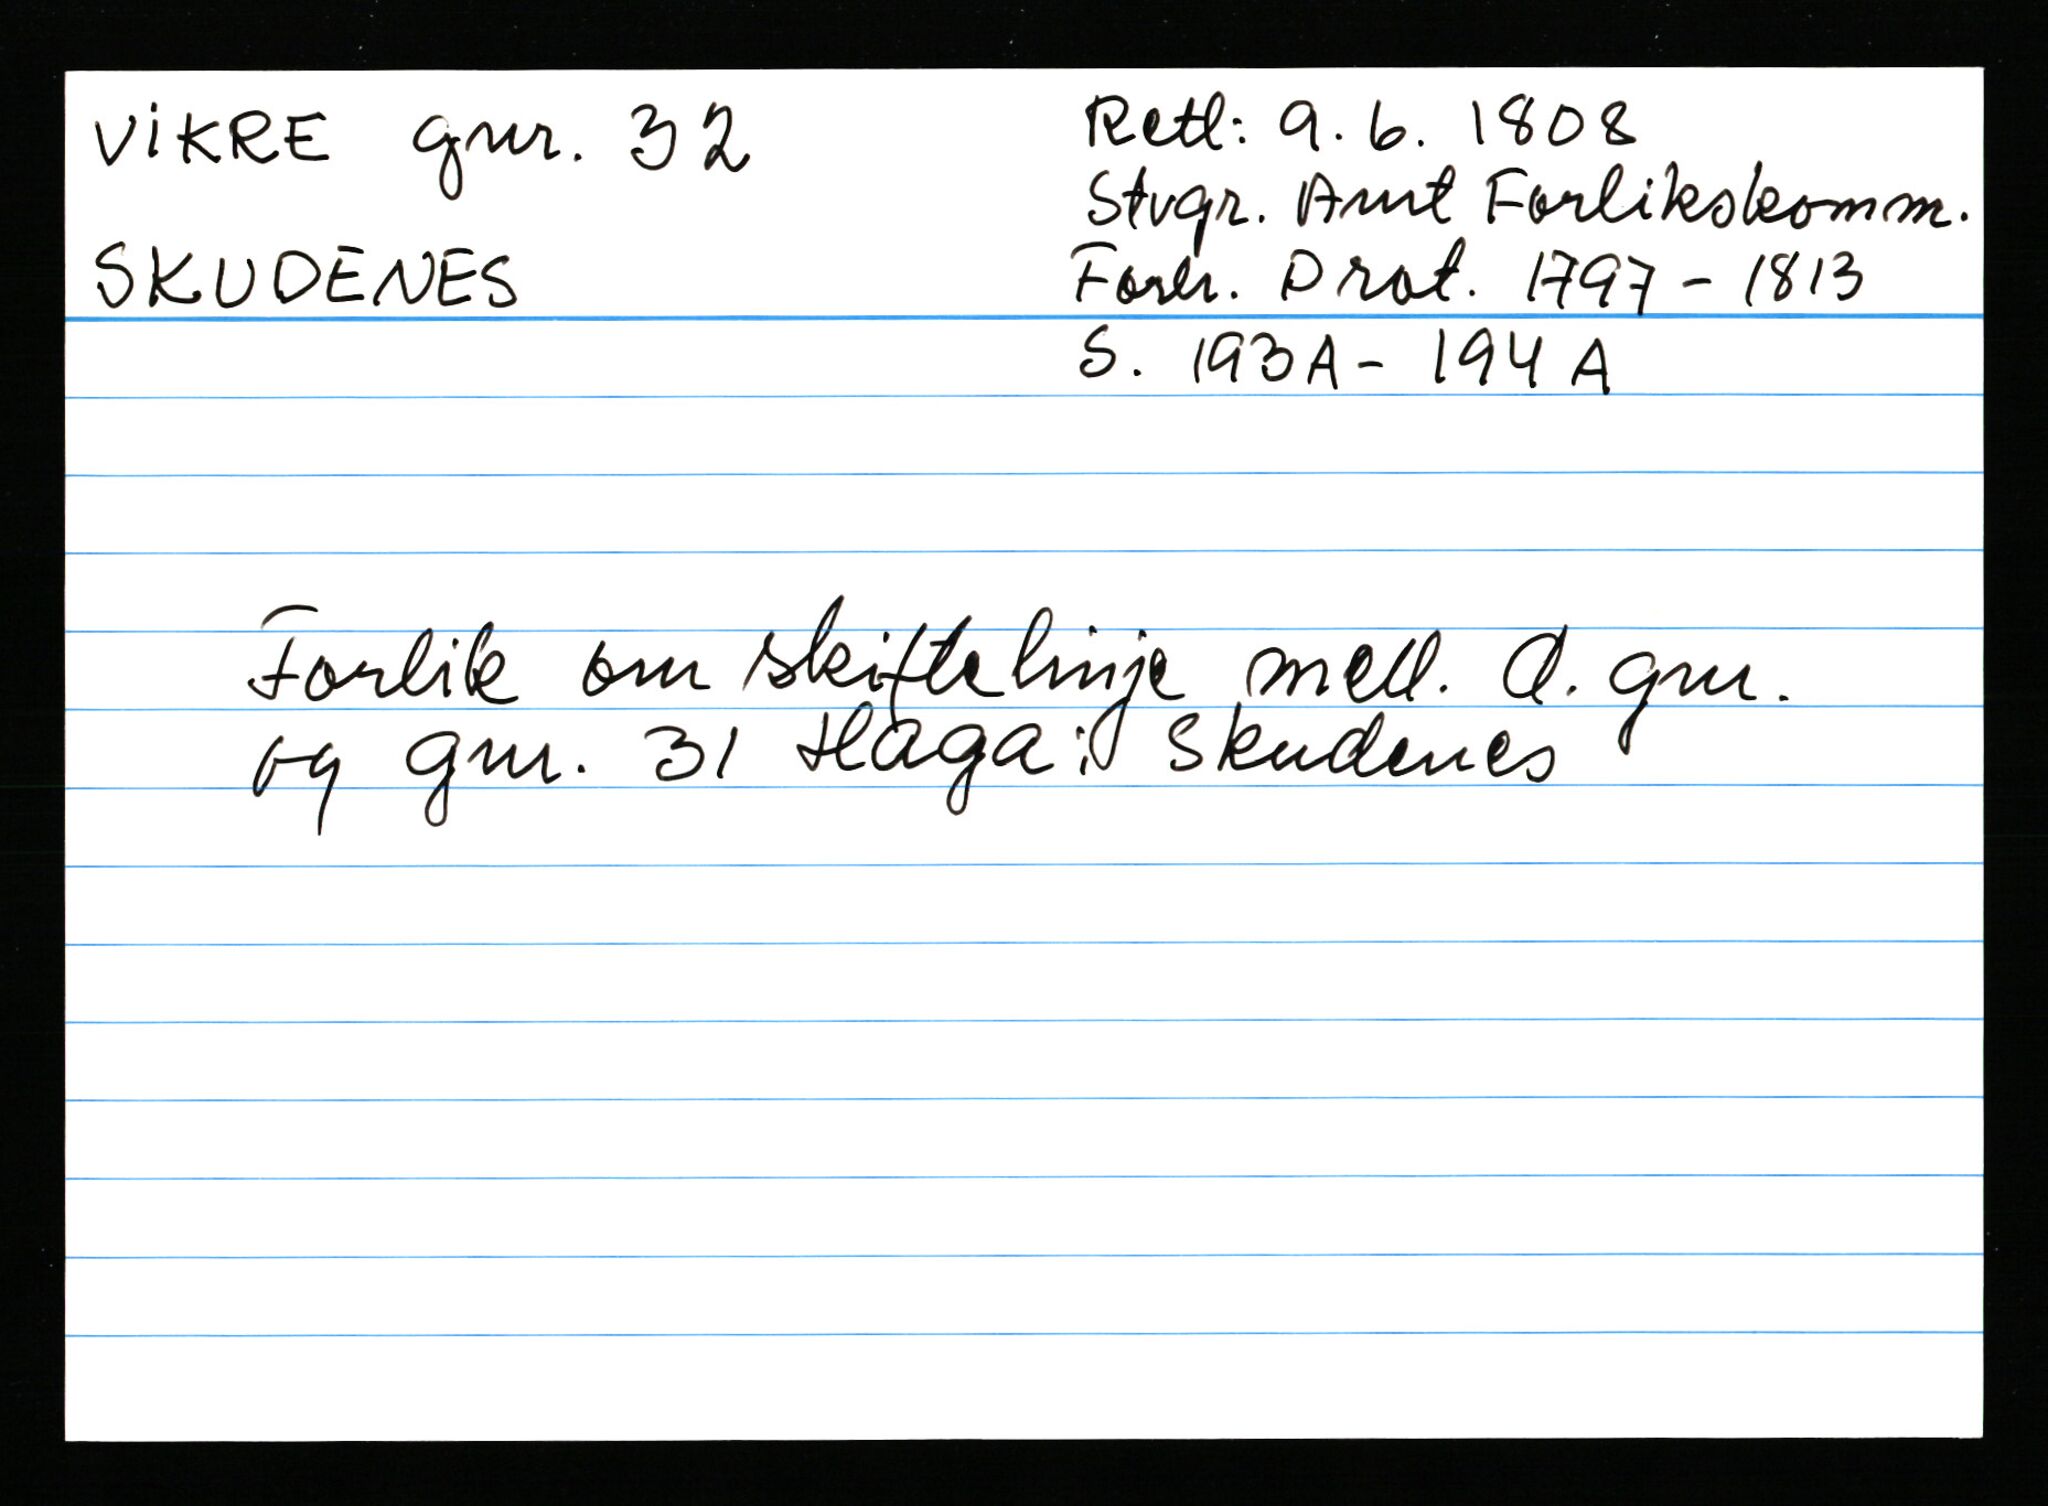 VIKRE gnr. 32
SKUDENES
Retl: 9. 6. 1808
Stvgr. Amt Forlikskomm.
Forh. Prot. 1797 - 1813
S. 193A - 194A
Forlik om skiftelinje mell. d. gnr.
og gnr. 31 Haga i Skudenes